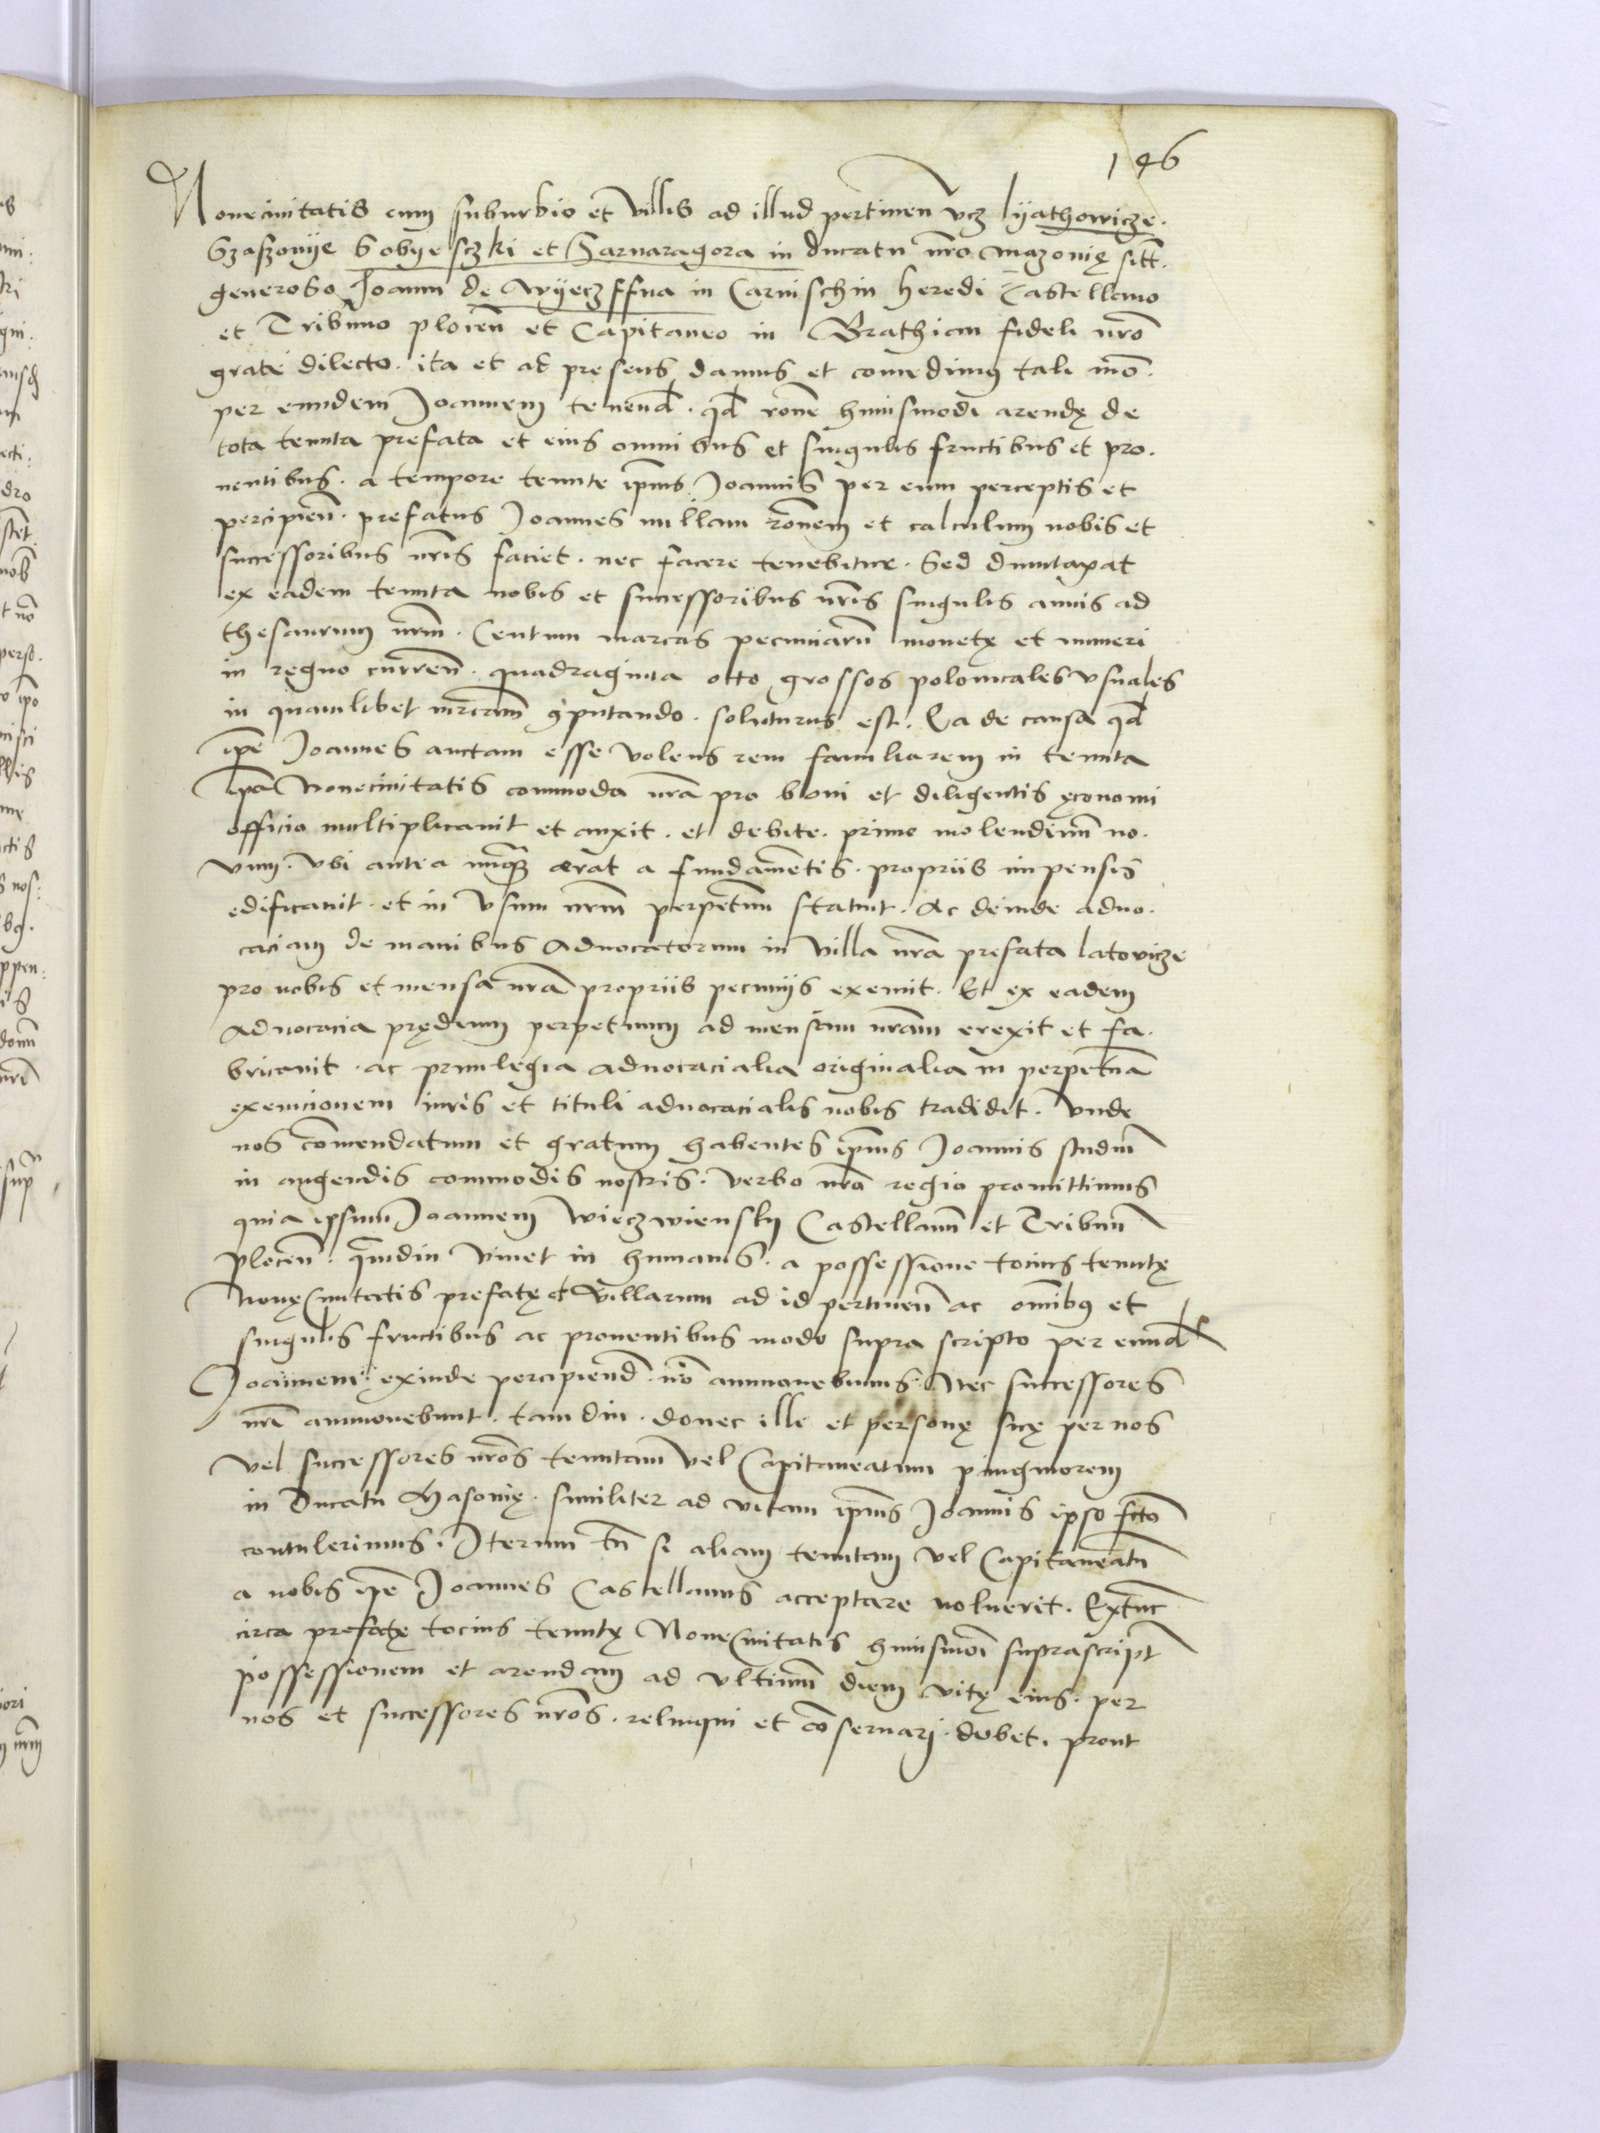 146
Nouecivitatis cum suburbio et Villis ad illud pertinen̄ vcz lyathowicze.
Szaszonije Sobyesczki et Czarnaragora in ducatu nr̄o mazoniȩ sitt̄.
generoso Joanni de Wyeczffna in Carnischin heredi Castellano
et Tribuno plocen̄ et Capitaneo in Brathian fideli nr̄o
grate dilecto. ita et at presens damus et concedimus tali mō.
per eundem Joannem tenend̄. qd̄ rōne huiusmodi arendȩ de
tota tenuta prefata et eius omnibus et singulis fructibus et pro.
uentibus. a tempore tenute ip̄ius Joannis per eum perceptis et
percipien̄. prefatus Joannes nullam rōnem et calculum nobis et
successoribus nr̄is faciet. nec facere tenebitur. Sed duntaxat
ex eadem tenuta nobis et successoribus nr̄is singulis annis ad
thesaurum nr̄m. Centum marcas pecuniarū monetȩ et numeri
in regno curren̄. quadraginta otto grossos polonicales vsuales
in quamlibet mr̄cam 9putando. soluturus est. Ea de causa qd̄
ip̄e Joannes auctam esse volens rem familiarem in tenuta
ip̄a Nouecivitatis commoda nr̄a pro boni et diligentis ȩconomi
officio multiplicauit et auxit. et debite. primo molendinū no.
uum. vbi antea nunq̄ȝ erat a fundamētis. propriis impensis
edificauit. et in vsum nr̄m perpetuū statuit. Ac deinde aduo.
caciam de manibus Aduocatorum in villa nr̄a prefata latovicze
pro nobis et mensa nr̄a propriis pecuniis exemit. Et ex eadem
Aduocacia prȩdium perpetuum ad mensam nr̄am erexit et fa.
bricauit. ac priuilegia aduocacialia originalia in perpetuā
exempcionem iuris et tituli aduocacialis nobis tradidit. vnde
nos cōmendatum et gratum habentes ip̄ius Joannis studiū
in augendis commodis nostris. verbo nr̄o regio promittimus
quia ipsum Joannem Wieczwiensky Castellanū et Tribunū
plocen̄. quādiu viuet in humanis. a possessione tocius tenutȩ
Nouȩcivitatis prefatȩ et villarum ad id pertinen̄ ac om̄ibus et
singulis fructibus ac prouentibus modo supra scripto per eund̄
Joannem exinde percipiend̄. nō ammouebimus. Nec successores
nr̄i ammouebunt. tam diu. donec illi et personȩ suȩ per nos
vel successores nr̄os tenutam vel Capitaneatum pinguiorem
in Ducatu Masoniȩ. similiter ad vitam ip̄ius Joannis ipso fc̄to
contulerimus. Iterum tn̄ si aliam tenutam vel Capitaneatū
a nobis ip̄e Joannes Castellanus acceptare noluerit. Extūc
circa prefatȩ tocius tenutȩ Nouecivitatis huiusmōi suprascript̄
possessionem et arendam ad vltimū diem vitȩ eius. per
nos et successores nr̄os. relinqui et cōseruari. debet. prout